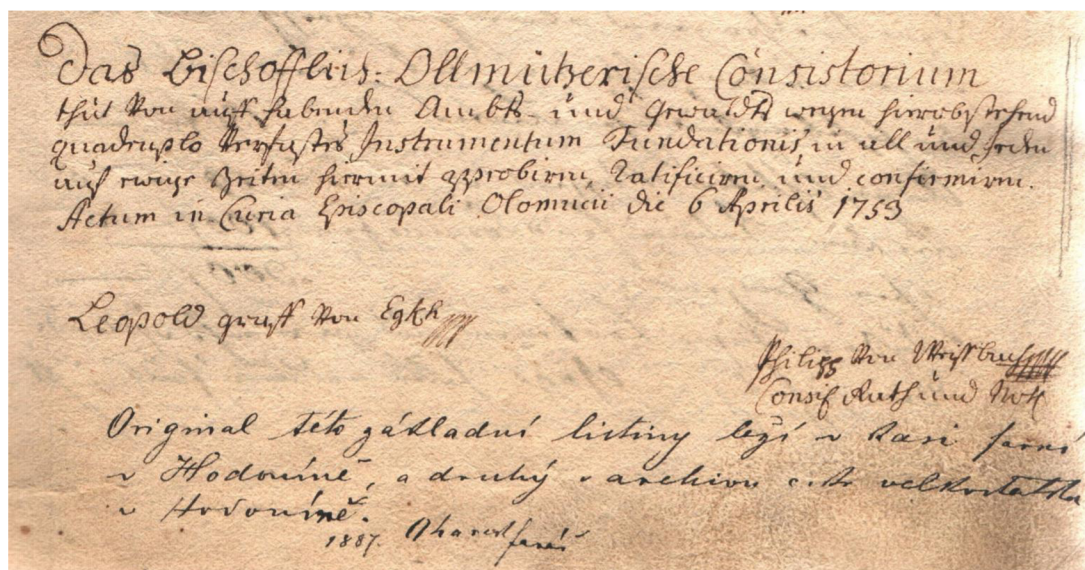 Das Bischofflich: Ollmützerische Consistorium
thut von auff habenden Ambts- und Gewaldts wegen hierobstehend
quadruplo verfastes Instrumentum Fundationis in all und jeden
auf ewige Zeiten hiermit approbiren, ratificiren, und confirmiren.
Actum in Curia Episcopali Olomucii die 6 Aprilis 1753
Leopold graff von Egkh
Philipp von Weissbach
Consis Rath und Not
Originał této základní listiny leží v kasi farní
v Hodoníně, a druhý v archivu velkostatku
v Hodoníně.
1887. farář